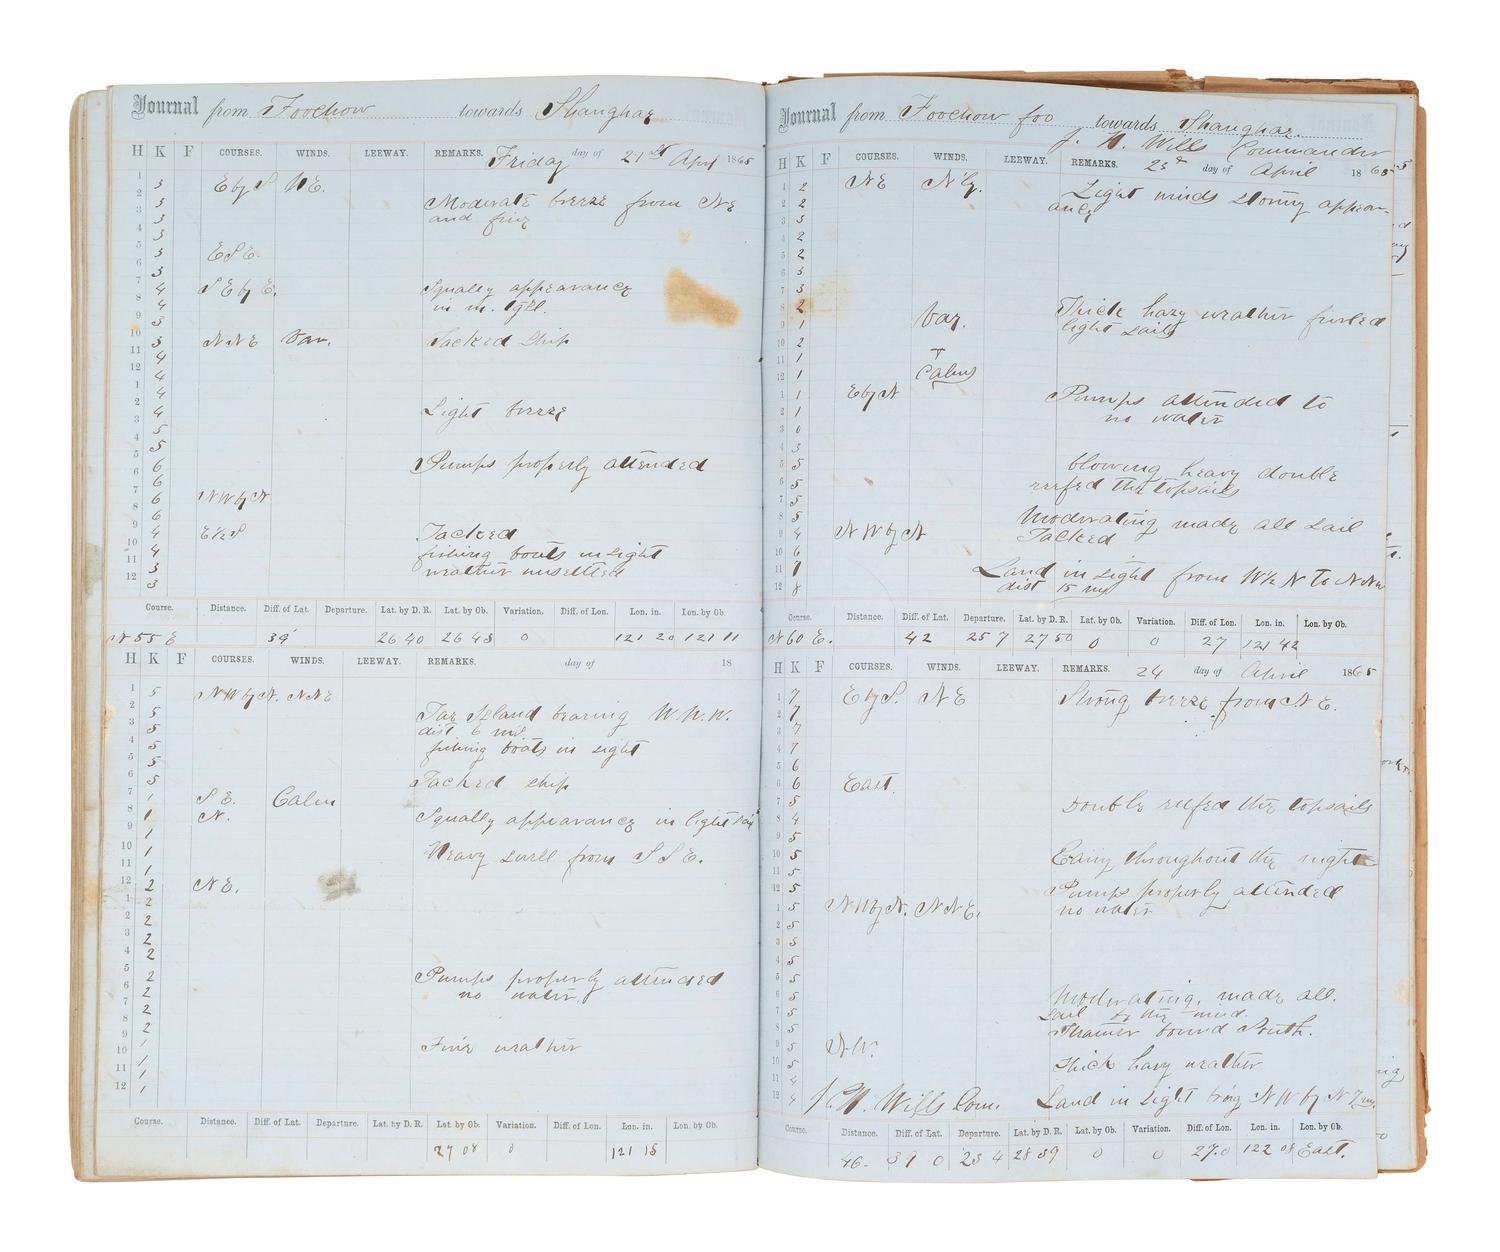 Journal from Foochow towards Shanghai
H K F COURSES. WINDS. LEEWAY. REMARKS. Friday day of 21st April 1865
1 3 E by S NE.
2 3 Moderate breeze from NE
3 3 and fine
4 3
5 3 ESE.
6 3
7 4 SE by E. Squally appearance
8 4 in
9 3
10 3 NNE Var. Tacked Ship
11 4
12 4
1 4
2 4 Light breeze
3 5
4 5
5 6 Pumps properly attended
6 6
7 6 NW by N
8 6
9 4 E½S Tacked
10 4 fishing boats in sight
11 3 weather unsettled
12 3
Course. Distance. Diff. of Lat. Departure. Lat. by D. R. Lat. by Ob. Variation. Diff. of Lon. Lon. in. Lon. by Ob.
N 55 E 39' 26 40 26 43 0 121 20 121 11
H K F COURSES. WINDS. LEEWAY. REMARKS. day of 18
1 5 NW by N. NNE
2 5 Island bearing W.N.W.
3 5 dist 6 mls
4 5 fishing boats in sight
5 5
6 5 Tacked ship
7 1 SE. Calm
8 1 N. Squally appearance in light sail
9 1
10 1 Heavy swell from SSE.
11 1
12 2 NE.
1 2
2 2
3 2
4 2
5 2 Pumps properly attended
6 2 no water
7 2
8 2
9 1 Fine weather
10 1
11 1
12 1
Course. Distance. Diff. of Lat. Departure. Lat. by D. R. Lat. by Ob. Variation. Diff. of Lon. Lon. in. Lon. by Ob.
27 08 0 121 15
Journal from Foochow foo towards Shanghai.
J. N. Wills Commander
H K F COURSES. WINDS. LEEWAY. REMARKS. 23d day of April 1865
1 2 NE N'ly. Light winds stormy appear-
2 2 ancy
3 3
4 2
5 2
6 3
7 3
8 2 Thick hazy weather furled
9 1 Var. light sails
10 2
11 1
12 1 Calms
1 1 E by N Pumps attended to
2 1 no water
3 0
4 3
5 5 blowing heavy double
6 5 reefed the topsails
7 5
8 5 Moderating made all sail
9 4 NW by N Tacked
10 6
11 7 Land in sight from W½N to NNW
12 8 dist 15 mls
Course. Distance. Diff. of Lat. Departure. Lat. by D. R. Lat. by Ob. Variation. Diff. of Lon. Lon. in. Lon. by Ob.
N 60 E. 42 25 7 27 50 0 0 27 121 42
H K F COURSES. WINDS. LEEWAY. REMARKS. 24 day of April 1865
1 7 E by S. NE Strong breeze from NE.
2 7
3 7
4 7
5 6
6 6 East.
7 5 Double reefed the topsails
8 4
9 5
10 5 throughout the night
11 5
12 5 Pumps properly attended
1 5 NW by N. NNE. no water
2 5
3 5
4 5
5 5
6 5 Moderating, made all.
7 5 sail
8 5 Steamer bound South.
9 5 NW.
10 5 Thick hazy weather
11 4
12 4 J. N. Wills Com. Land in sight br'ng NW by N 7 ms.
Course. Distance. Diff. of Lat. Departure. Lat. by D. R. Lat. by Ob. Variation. Diff. of Lon. Lon. in. Lon. by Ob.
46. 39 0 23 4 28 39 0 0 27.0 122 08 East.